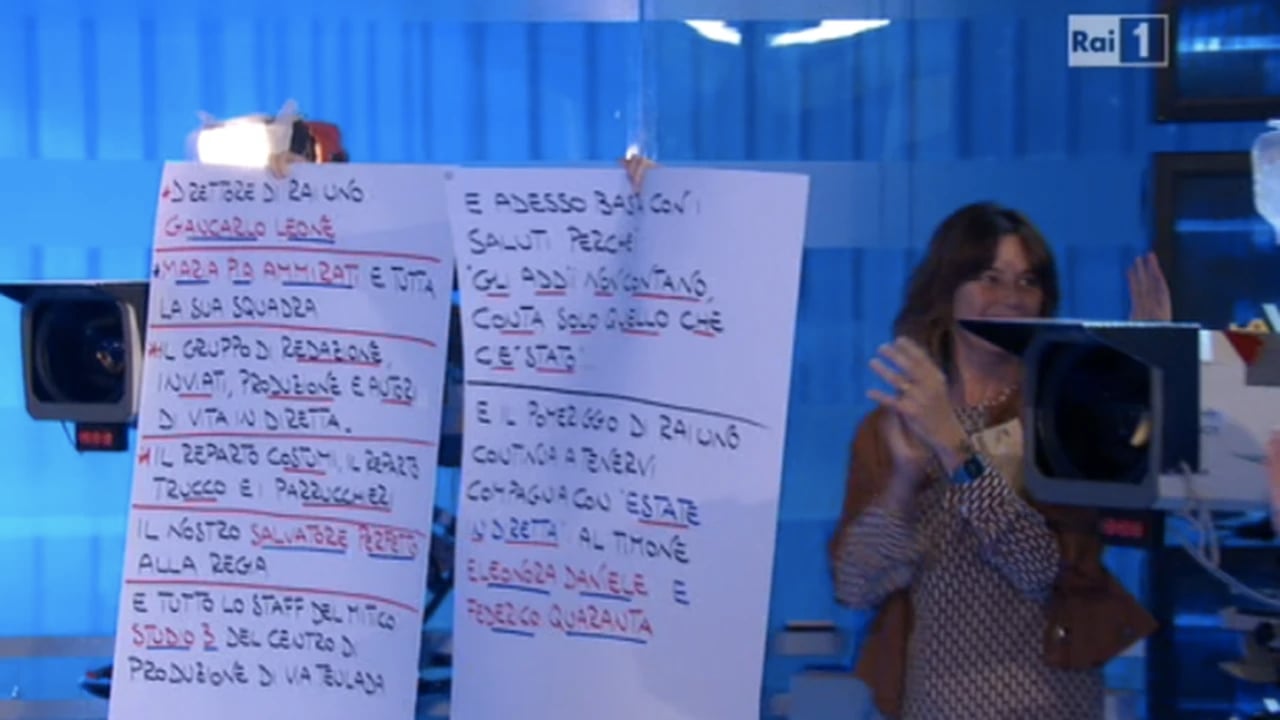 Rai 1
*DIRETTORE DI RAI UNO
GIANCARLO LEONE
*MARIA PIA AMMIRATI E TUTTA
LA SUA SQUADRA
*IL GRUPPO DI REDAZIONE,
INVIATI, PRODUZIONE E AUTORI
DI VITA IN DIRETTA.
*IL REPARTO COSTUMI, IL REPARTO
TRUCCO E I PARRUCCHIERI
IL NOSTRO SALVATORE PERFETTO
ALLA REGIA
E TUTTO LO STAFF DEL MITICO
STUDIO 3 DEL CENTRO DI
PRODUZIONE DI VIA TEULADA
E ADESSO BASTA CON I
SALUTI PERCHE'
"GLI ADDII NON CONTANO,
CONTA SOLO QUELLO CHE
C'E' STATO".
E IL POMERIGGIO DI RAI UNO
CONTINUA A TENERVI
COMPAGNIA CON "ESTATE
IN DIRETTA" AL TIMONE
ELEONORA DANIELE E
FEDERICO QUARANTA